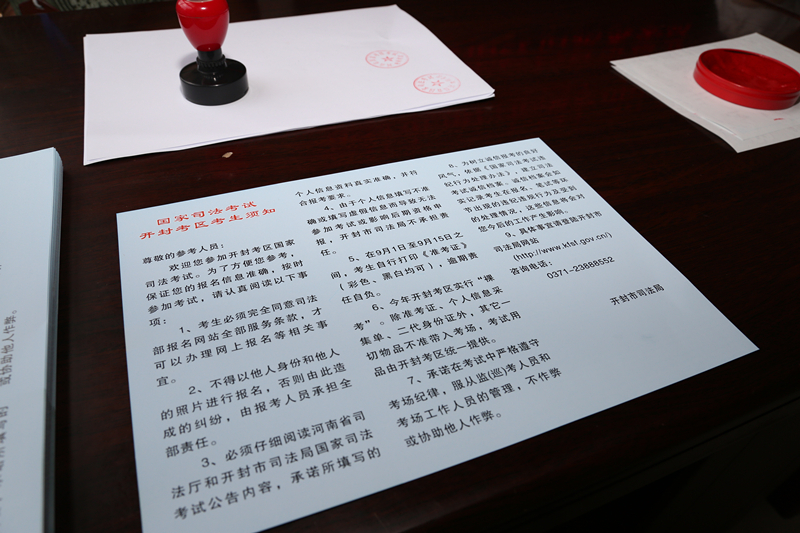 国家司法考试
开封考区考生须知
尊敬的参考人员：
欢迎您参加开封考区国家
司法考试。为了方便您参考，
保证您的报名信息准确，按时
参加考试，请认真阅读以下事
项：
1、考生必须完全同意司法
部报名网站全部服务条款，才
可以办理网上报名等相关事
宜。
2、不得以他人身份和他人
的照片进行报名，否则由此造
成的纠纷，由报考人员承担全
部责任。
3、必须仔细阅读河南省司
法厅和开封市司法局国家司法
考试公告内容，承诺所填写的
个人信息资料真实准确，并符
合报考要求。
4、由于个人信息填写不准
确或填写虚假信息而导致无法
参加考试或影响后期资格申
报，开封市司法局不承担责
任。
5、在9月1日至9月15日之
间，考生自行打印《准考证》
（彩色、黑白均可），逾期责
任自负。
6、今年开封考区实行“裸
考”。除准考证、个人信息采
集单、二代身份证外，其它一
切物品不准带入考场，考试用
品由开封考区统一提供。
7、承诺在考试中严格遵守
考场纪律，服从监(巡)考人员和
考场工作人员的管理，不作弊
或协助他人作弊。
8、为树立诚信报考的良好
风气，依据《国家司法考试违
纪行为处理办法》，建立司法
考试诚信档案，诚信档案会如
实记录考生在报名、笔试等环
节出现的违纪违规行为及受到
的处理情况，这些信息将会对
您今后的工作产生影响。
9、具体事宜请登陆开封市
司法局网站
（http://www.kfst.gov.cn/）
咨询电话：
0371-23888552
开封市司法局
或协助他人作弊。